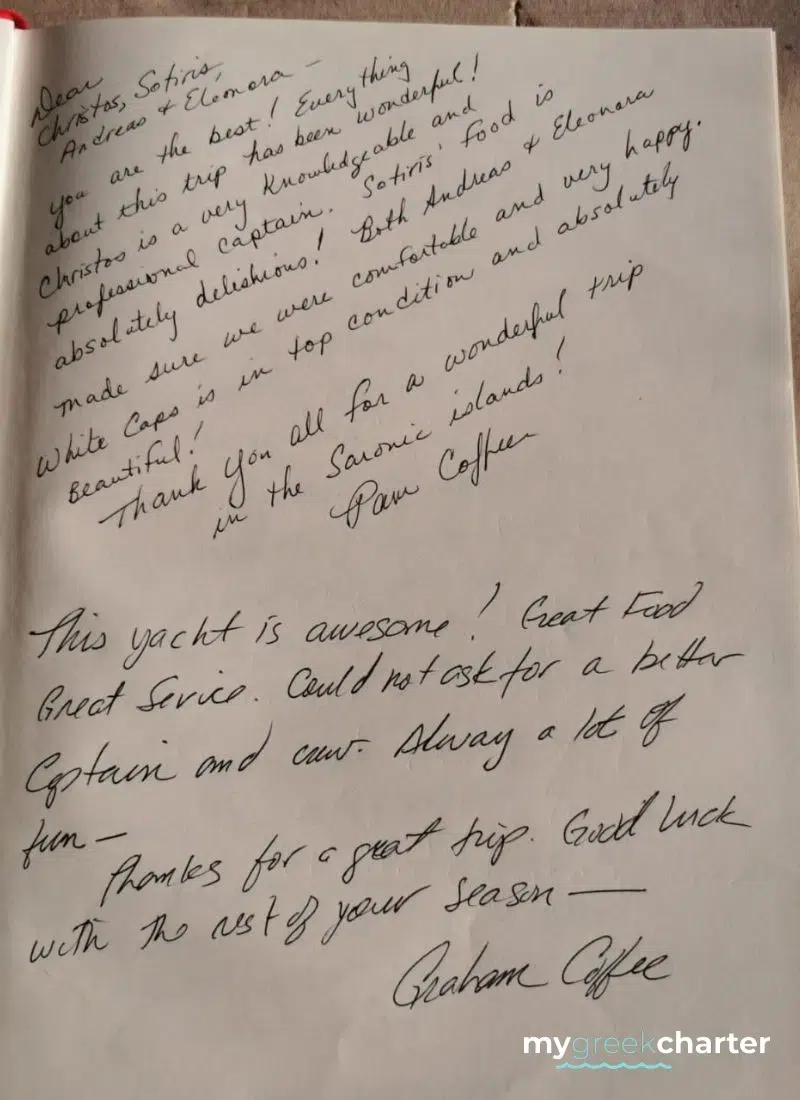 Dear
Christos, Sotiris,
Andreas & Eleonora –
you are the best! Everything
about this trip has been wonderful!
Christos is a very knowledgeable and
professional captain. Sotiris' food is
absolutely delishious! Both Andreas & Eleonara
made sure we were comfortable and very happy.
White Caps is in top condition and absolutely
Beautiful!
Thank you all for a wonderful trip
in the Saronic islands!
Pam Coffee
This yacht is awesome! Great Food
Great Service. Could not ask for a better
Captain and crew. Alway a lot of
fun –
Thanks for a great trip. Good luck
with the rest of your season —
Graham Coffee
mygreekcharter